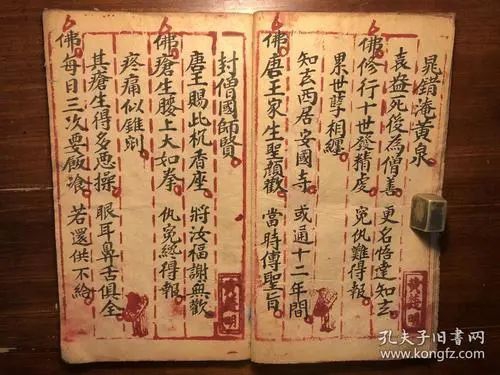 晁錯淹黃泉
袁盎死後為僧善 更名悟達知玄
佛修行十世發精虔 冤仇難得報
累世孽相纏
知玄西居安國寺 或通十二年間
佛唐王家生聖顏歡 當時傳聖旨
封僧國師賢
唐王賜此杌香座 將汝福謝興歡
佛瘡生腰上大如拳 仇冤總得報
疼痛似錐刺
其瘡生得多惡操 眼耳鼻舌俱全
佛每日三次要飯飡 若還供不給
孔夫子旧书网
www.kongfz.com